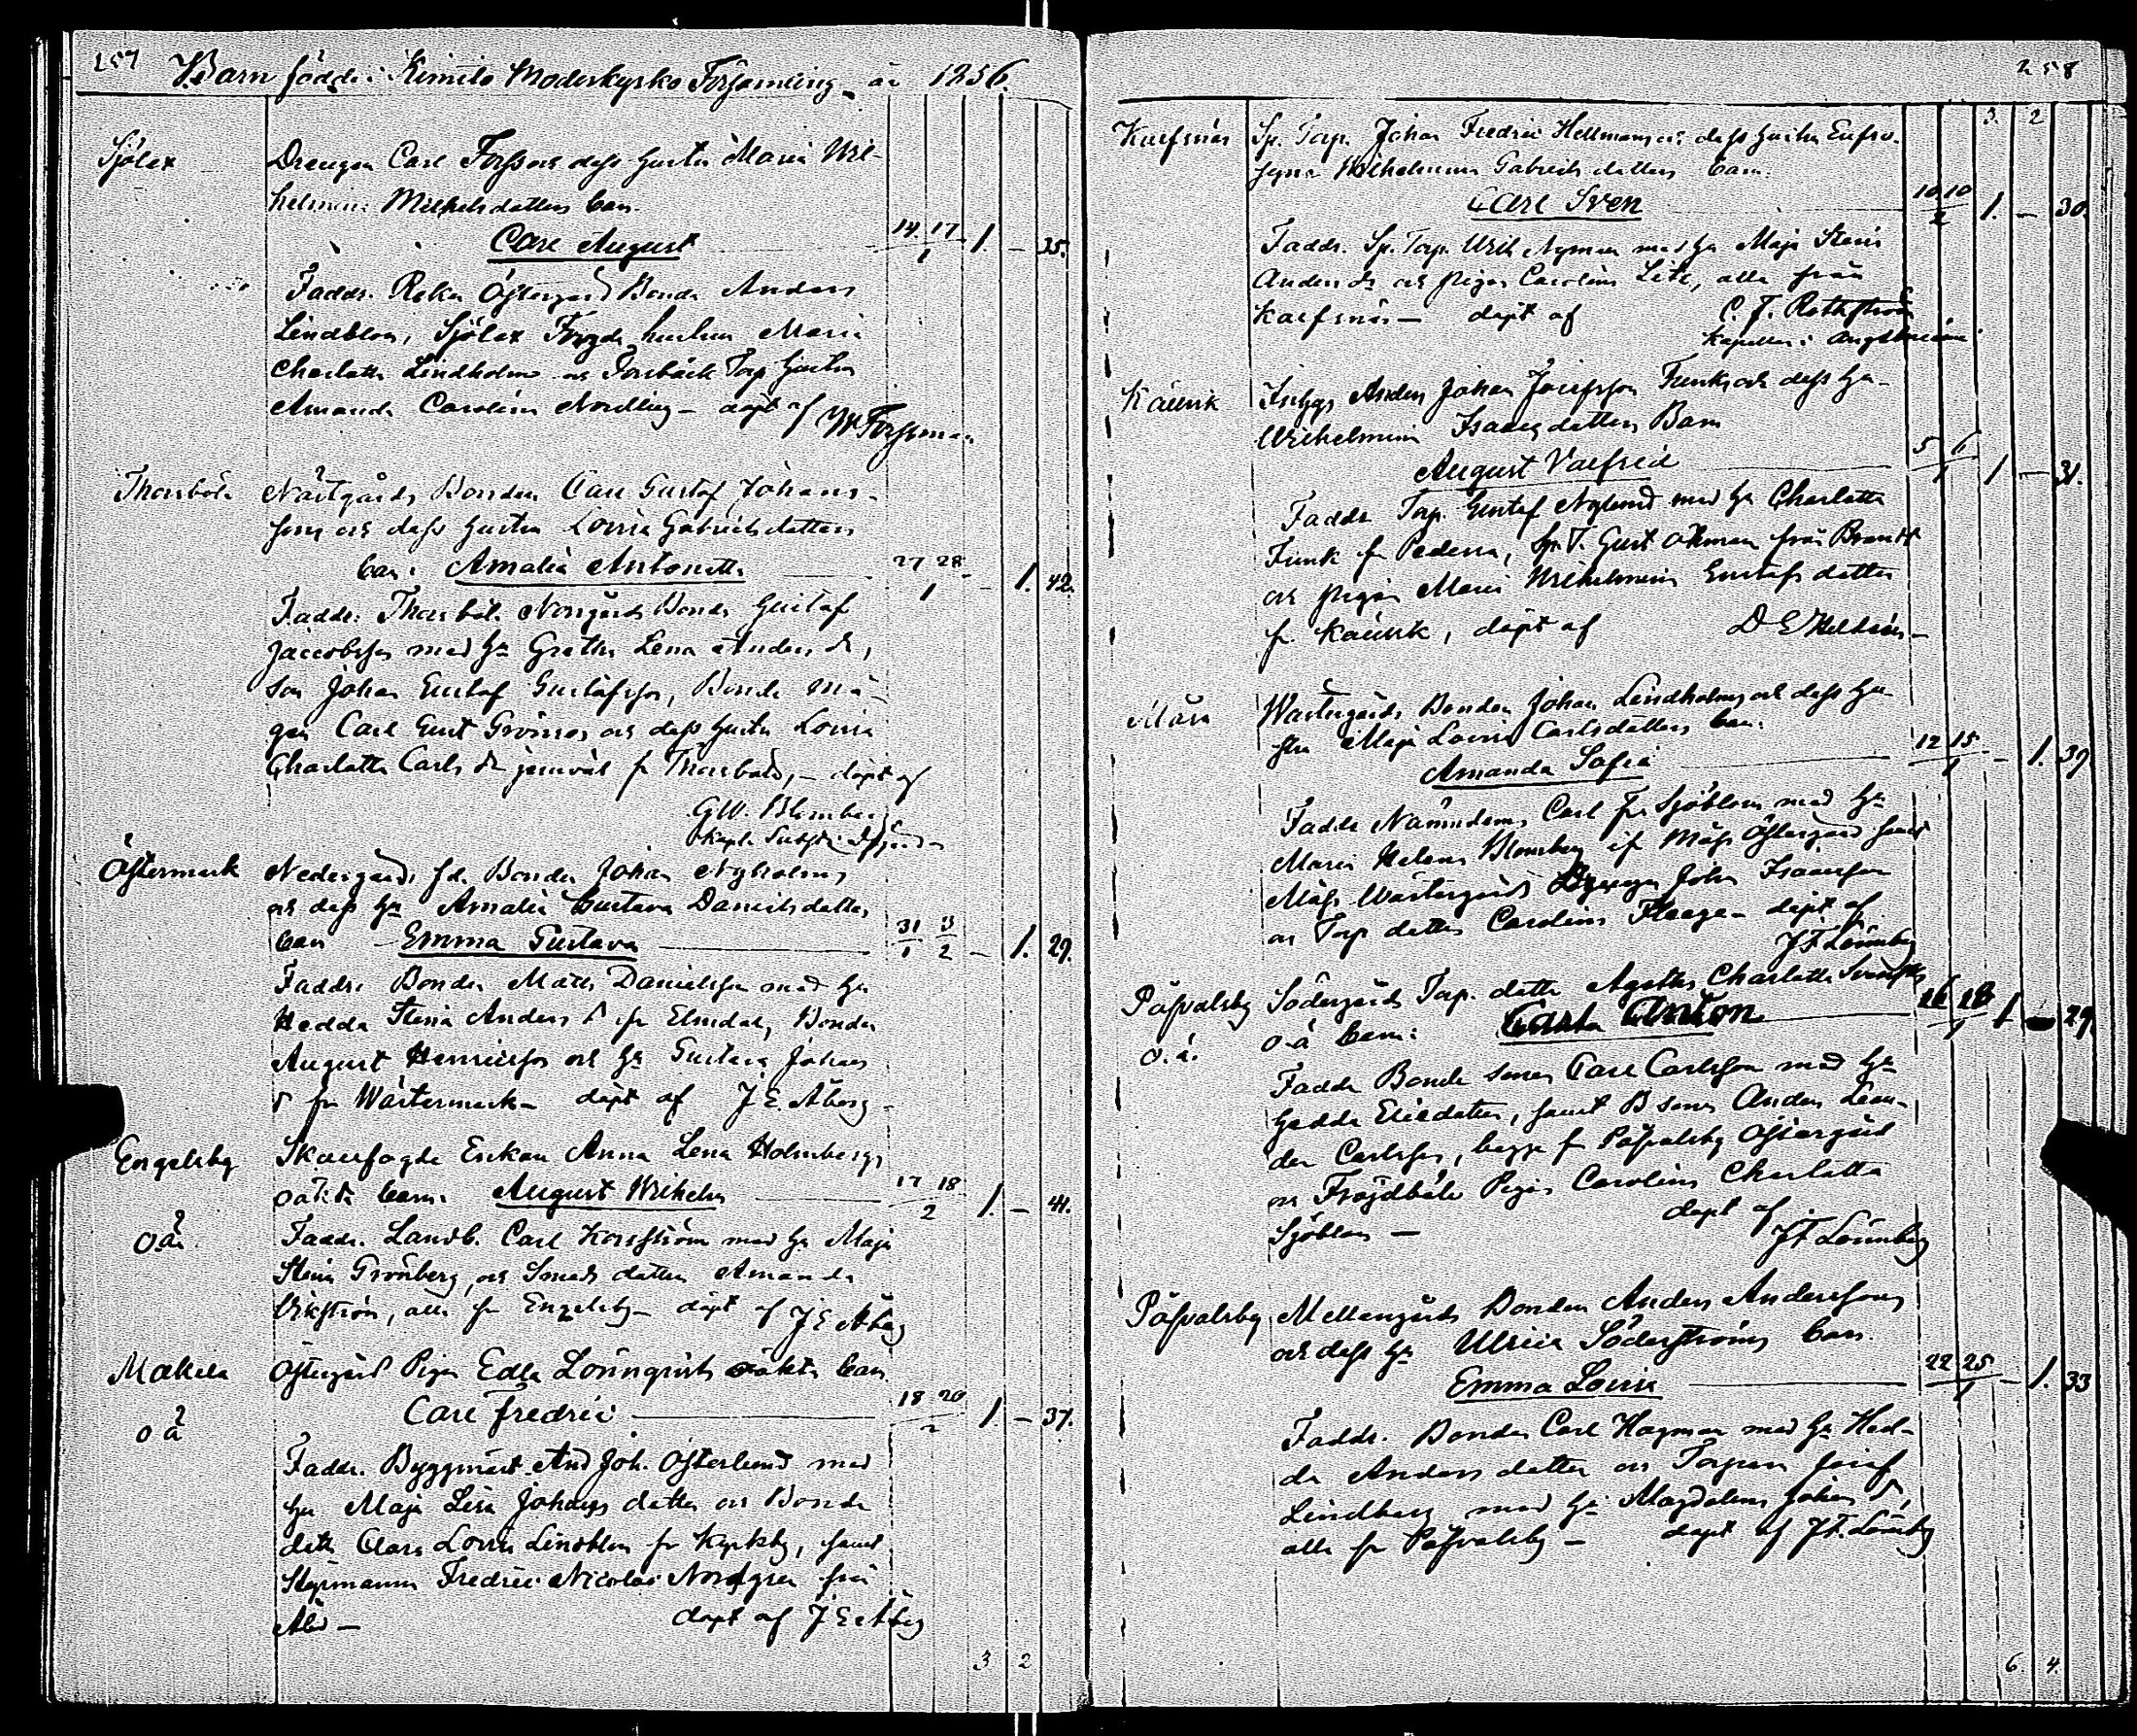 257
Barn födde i Kimito Moderkyrko Församling år 1856.
Sjölax
Drengen Carl Forss och dess hustru Maria Wil-
helmina Michelsdotters barn
Carl August 14 17 1 1. – 35.
Faddr. Reka Östergård Bonde Anders
Lindblom, Sjölax hustrun Maria
Charlotta Lindholm och Torp hustru
Amanda Carolina Nordling – döpt af
W Forssman
Thorsböle
Bonden Carl Gustaf Johans-
sons och dess hustru Lovisa Gabrielsdotters
barn Amalia Antonetta 27 28 1 – 1. 42.
Faddr. Thorsböle Norrgårds Bonde Gustaf
Jacobsson med hu Greta Lena Anders dr,
son Johan Gustaf Gustafsson, Bonde må-
gen Carl Gust Grönroos och dess hustru Lovisa
Charlotta Carls dr jemväl fr Thorsböle, – döpt af
G.W. Blomberg
Östermark
Nedergårds f.d. Bonden Johan Nyholms
och dess hu Amalia Gustava Danielsdotters
barn Emma Gustava 31 1 3 2 – 1. 29.
Faddr. Bonden Mats Danielsson med hu
Hedda Stina Anders dr fr Elmdal, Bonden
August Henricsson och hu Gustava Johans
dr fr Wästermark – döpt af J E. Åberg
Engelsby
Skallfogde Enkan Anna Lena Holmbergs
oäkta barn August Wilhelm 17 18 2 1. – 44.
o.ä.
Faddr. Landb. Carl Korsström med hu Maja
Stina Grönberg, och Smeds dotter Amanda
Wikström, alla fr Engelsby – döpt af J E Åberg
Makila
Östergård Pigan Edla Lönnqvists oäkta barn
Carl Fredric 18 20 2 1 – 37.
o ä
Faddr. Byggmäst. And Joh. Österlund med
hu Maja Lisa Johans dotter och Bonde
dottr Clara Lovisa Lindblom fr Kyrkby, samt
Styrmannen Fredric Nicolai Nordgren från
Åbo – döpt af J E Åberg
3 2
258
3. 2
Kalfsnäs
Sp. Torp. Johan Fredric Hellmans och dess hustru Eufro-
syna Wilhelmina Gabriels dotters barn
Carl Sven 10 10 2 1. – 30.
Faddr. Sp. Torp. Nyman med hu Maja Stina
Anders dr och pigan Carolina, alla från
Kalfsnäs – döpt af C. F. Rothström
Kapellan i
Inhys Anders Johan Josefsson Funk och dess hu
Wilhelmina Isaacsdotters Barn
August Valfrid 5 6 1 1 – 31.
Faddr Torp. Gustaf Nylund med hu Charlotta
Funk fr Pederså, Sp. T. Gust Öhman från
och pigan Maria Wilhelmina Gustafs dotter
fr., döpt af D E
Wästergårds Bonden Johan Lindholms och dess hu-
stru Maja Lovisa Carlsdotters barn
Amanda Sofia 12 15 1 – 1. 39
Faddr Nämndem. Carl Fr Sjöblom med hu
Maria Helena Blomberg Östergård samt
Wästergårds Drengen Johan Isaacsson
och Torp dotter Carolina – döpt af
J F Lönnberg
Påfvalsby
Södergårds Torp. dotter Agatha Charlotta
o.ä.
o.ä barn: Carl Anton 26 28 1 1 – 29.
Faddr Bonde sonen Carl Carlsson med hu
Hedda Eliedotter, samt B sonen Anders Lean-
der Carlsson, begge fr Påfvalsby Östergård
och Fröjdböle Pigan Carolina Charlotta
Sjöblom – döpt af
J F Lönnberg
Påfvalsby
Mellangårds Bonden Anders Anderssons
och dess hu Ulrica Söderströms barn
Emma Lovisa 22 25 1 – 1. 33
Faddr. Bonden Carl Hagman med hu Hed-
da Anders dotter och Torparn Josef
Lindberg med hu Magdalena Johans dr,
alla fr Påfvalsby – döpt af J F. Lönnberg
6. 4.